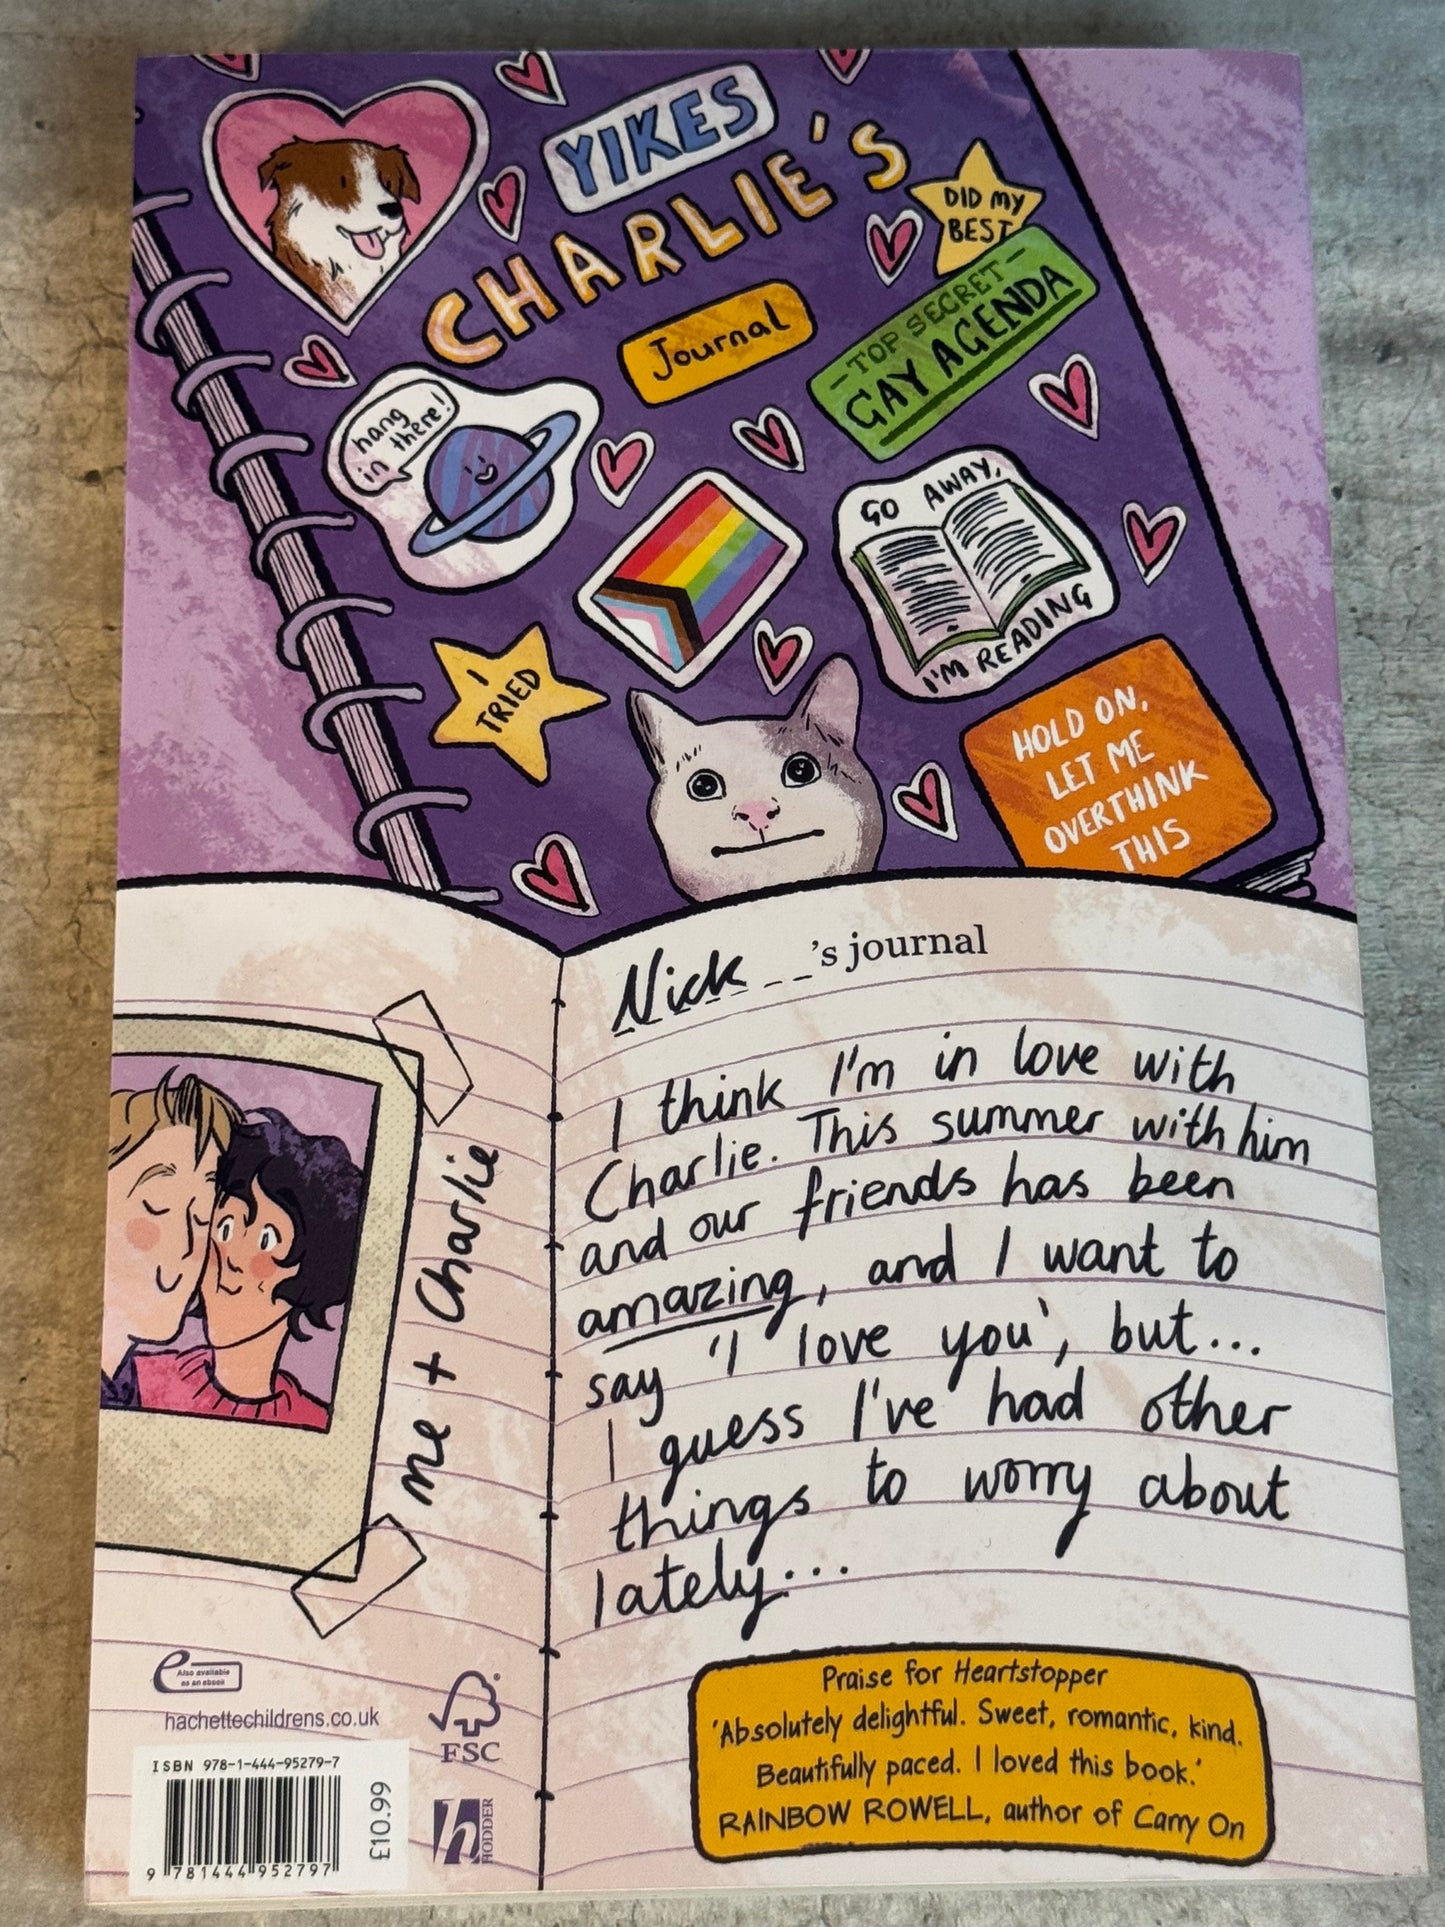 YIKES
CHARLIE'S
Journal
DID MY
BEST
– TOP SECRET –
GAY AGENDA
hang
in there!
GO AWAY,
I'M READING
I
TRIED
HOLD ON,
LET ME
OVERTHINK
THIS
Nick 's journal
I think I'm in love with
Charlie. This summer with him
and our friends has been
amazing, and I want to
say 'I love you', but...
I guess I've had other
things to worry about
lately...
me + Charlie
Praise for Heartstopper
'Absolutely delightful. Sweet, romantic, kind.
Beautifully paced. I loved this book.'
RAINBOW ROWELL, author of Carry On
e Also available
as an ebook
hachettechildrens.co.uk
FSC
ISBN 978-1-444-95279-7
9 781444 952797
£10.99
h HODDER